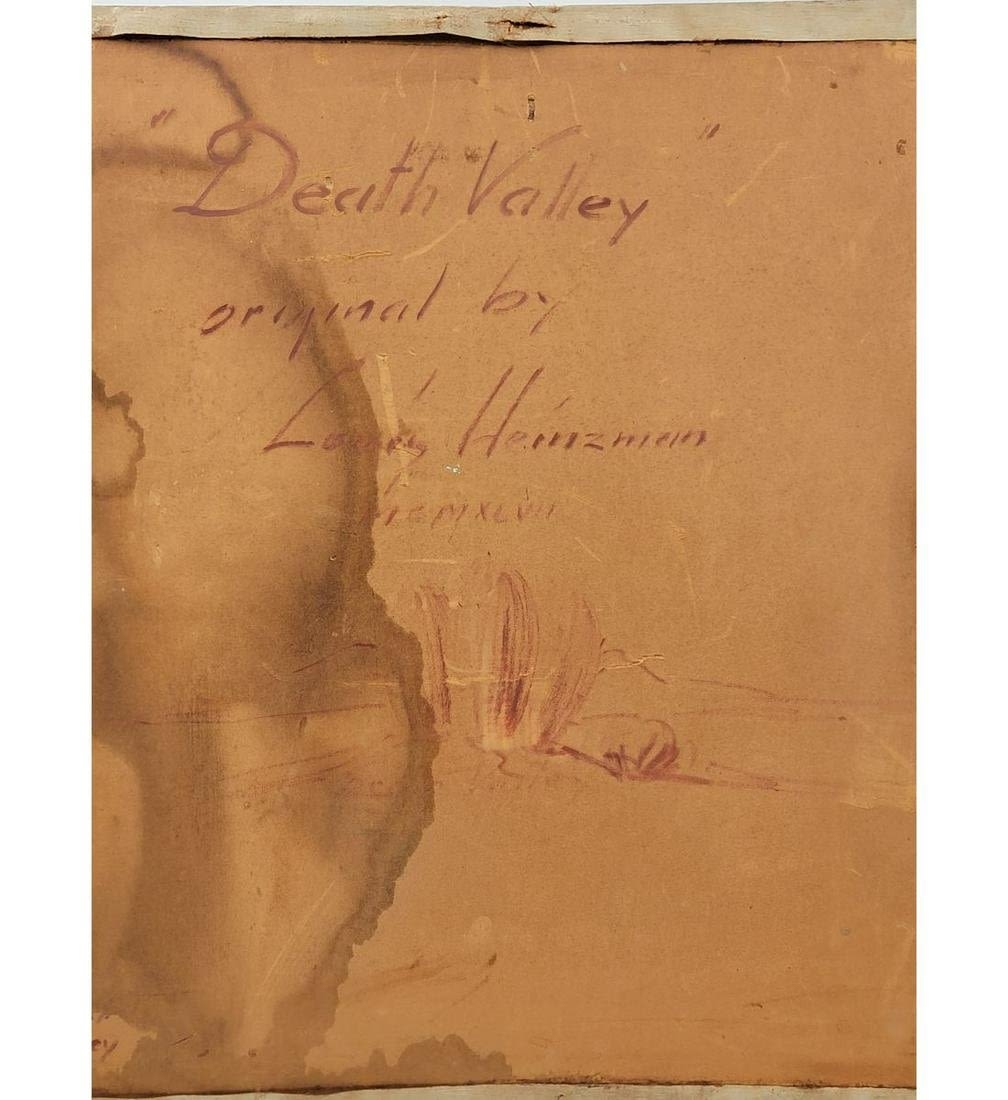 "Death Valley"
original by
Louis Heinzman
MCMXLVII
ey